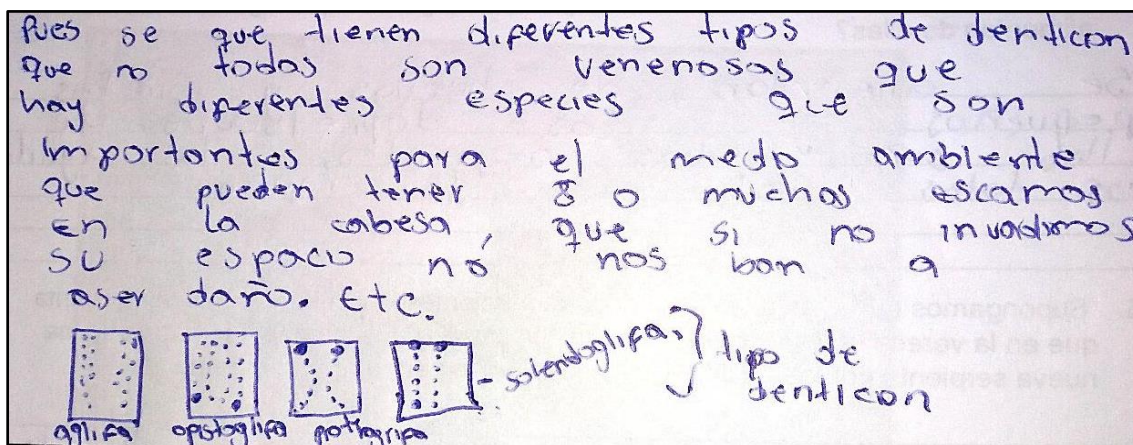 Pues se que tienen diferentes tipos de denticon
que no todas son venenosas que
hay diferentes especies que son
importantes para el medo ambiente
que pueden tener 8 o muchas escamas
en la cabesa, que si no invadimos
su espacio no nos ban a
aser daño. Etc.
solenoglifa. } tipo de
denticon
aglifa opistoglifa